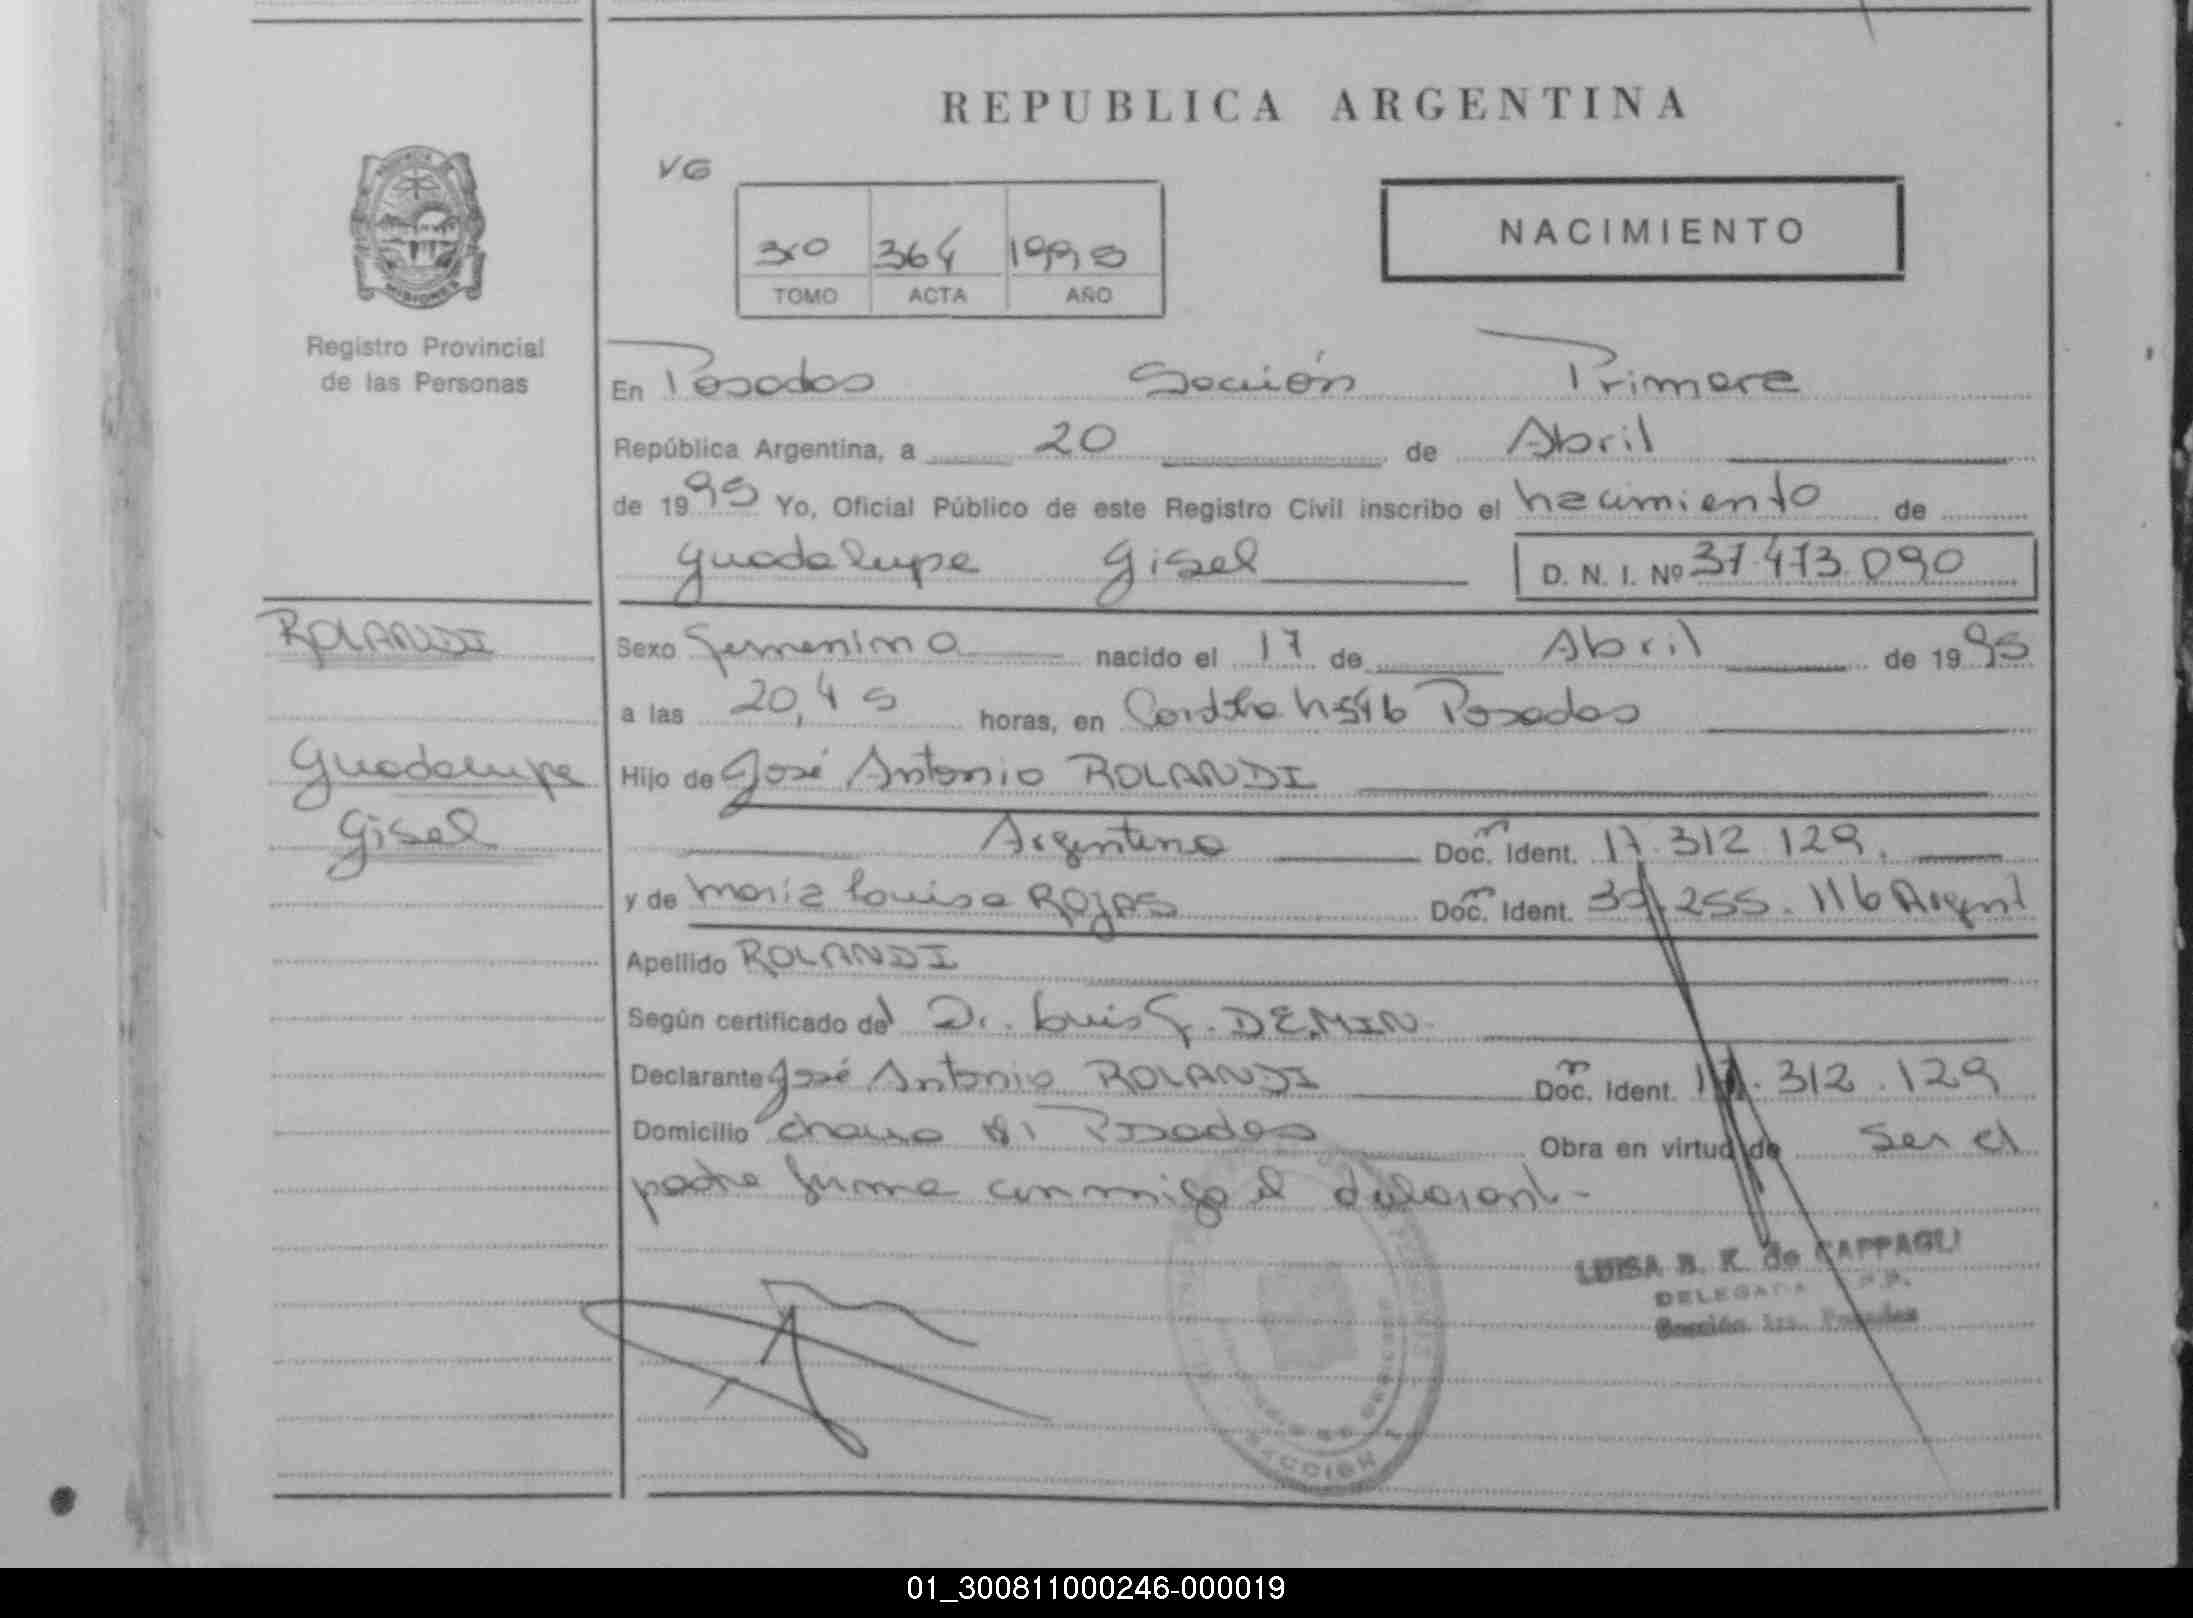 REPUBLICA ARGENTINA
VG
NACIMIENTO
3ro 364 1995
TOMO ACTA AÑO
MISIONES
Registro Provincial
de las Personas
En Posadas Sección Primera
República Argentina, a 20 de Abril
de 1995 Yo, Oficial Público de este Registro Civil inscribo el nacimiento de
Guadalupe Gisel D. N. I. Nº 37.473.090
ROLANDI
Guadalupe
Gisel
Sexo Femenino nacido el 17 de Abril de 1995
a las 20,45 horas, en Posadas
Hijo de José Antonio ROLANDI
Argentino Doc. Ident. 17.312.129.
y de María Louisa ROJAS Doc. Ident. 255.116 Argent
Apellido ROLANDI
Según certificado del Dr. Luis F. DEMIN.
Declarante José Antonio ROLANDI Doc. Ident. 17.312.129
Domicilio Posadas Obra en virtud de ser el
padre firma conmigo el declarant.-
LUISA B. K. de CAPPAGLI
DELEGADA
Sección 1ra. Posadas
SECCION 1
01_300811000246-000019